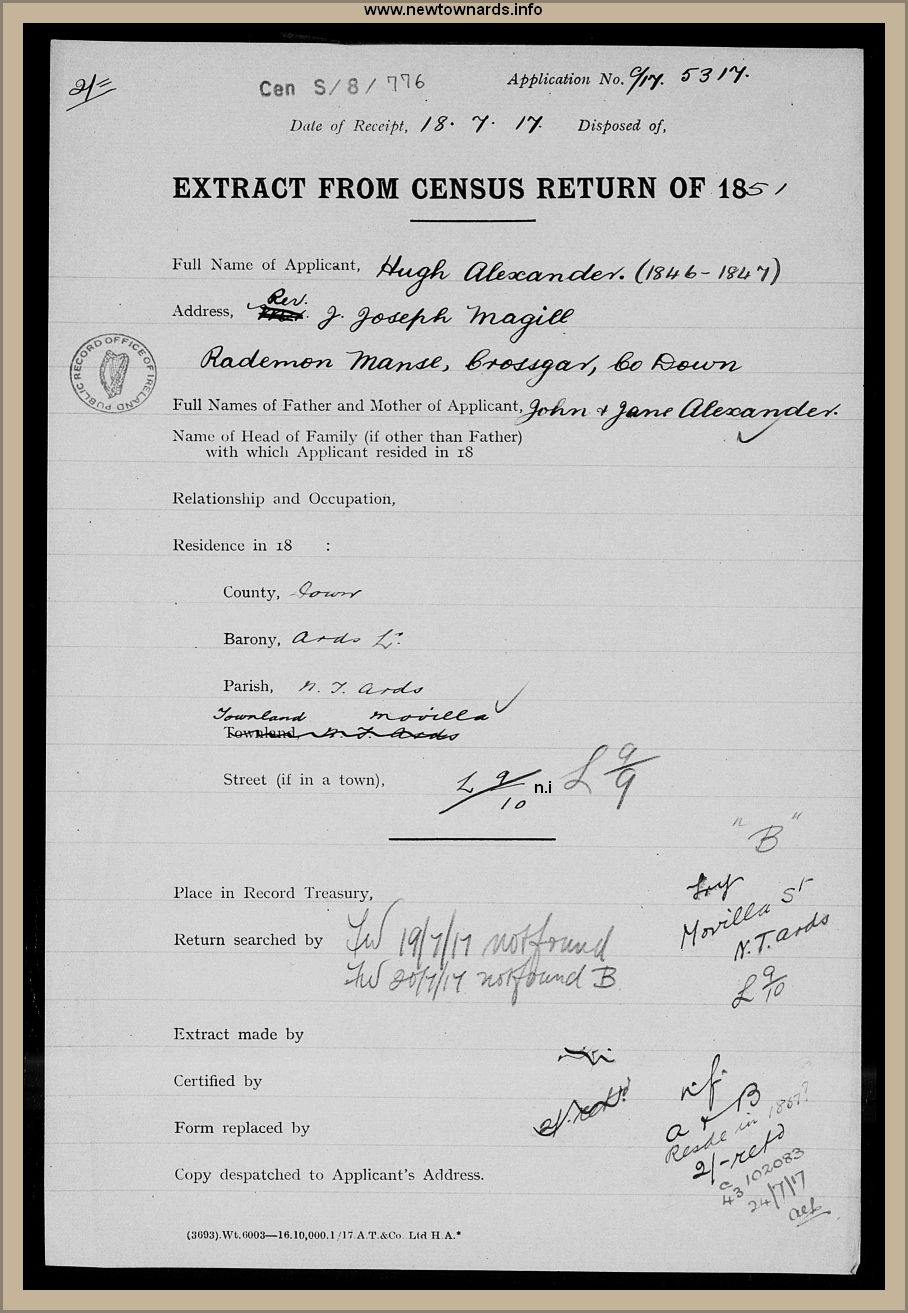 www.newtownards.info
2/=
Cen S/8/776
Application No. C/17. 5317.
Date of Receipt, 18. 7. 17. Disposed of,
EXTRACT FROM CENSUS RETURN OF 1851
Full Name of Applicant, Hugh Alexander. (1846-1847)
Rev.
Address, J. Joseph Magill
Rademon Manse, Crossgar, Co Down
PUBLIC RECORD OFFICE OF IRELAND
Full Names of Father and Mother of Applicant, John & Jane Alexander.
Name of Head of Family (if other than Father)
with which Applicant resided in 18
Relationship and Occupation,
Residence in 18 :
County, Down
Barony, Ards Lr.
Parish, N. T. Ards
Townland Movilla
Townland, N. T. Ards
Street (if in a town),
L 9/10 n.i L 9/9
"B"
Place in Record Treasury,
Try
Movilla St
N.T. Ards
L 9/10
Return searched by 19/7/17 not found
20/7/17 not found B
Extract made by
Certified by
Form replaced by
n.f.
a & B
Reside in 1861?
2/- retd
c/43 102083
24/7/17
Copy despatched to Applicant's Address.
(3693).Wt.6003—16.10,000.1/17.A.T.&Co. Ltd H.A.*